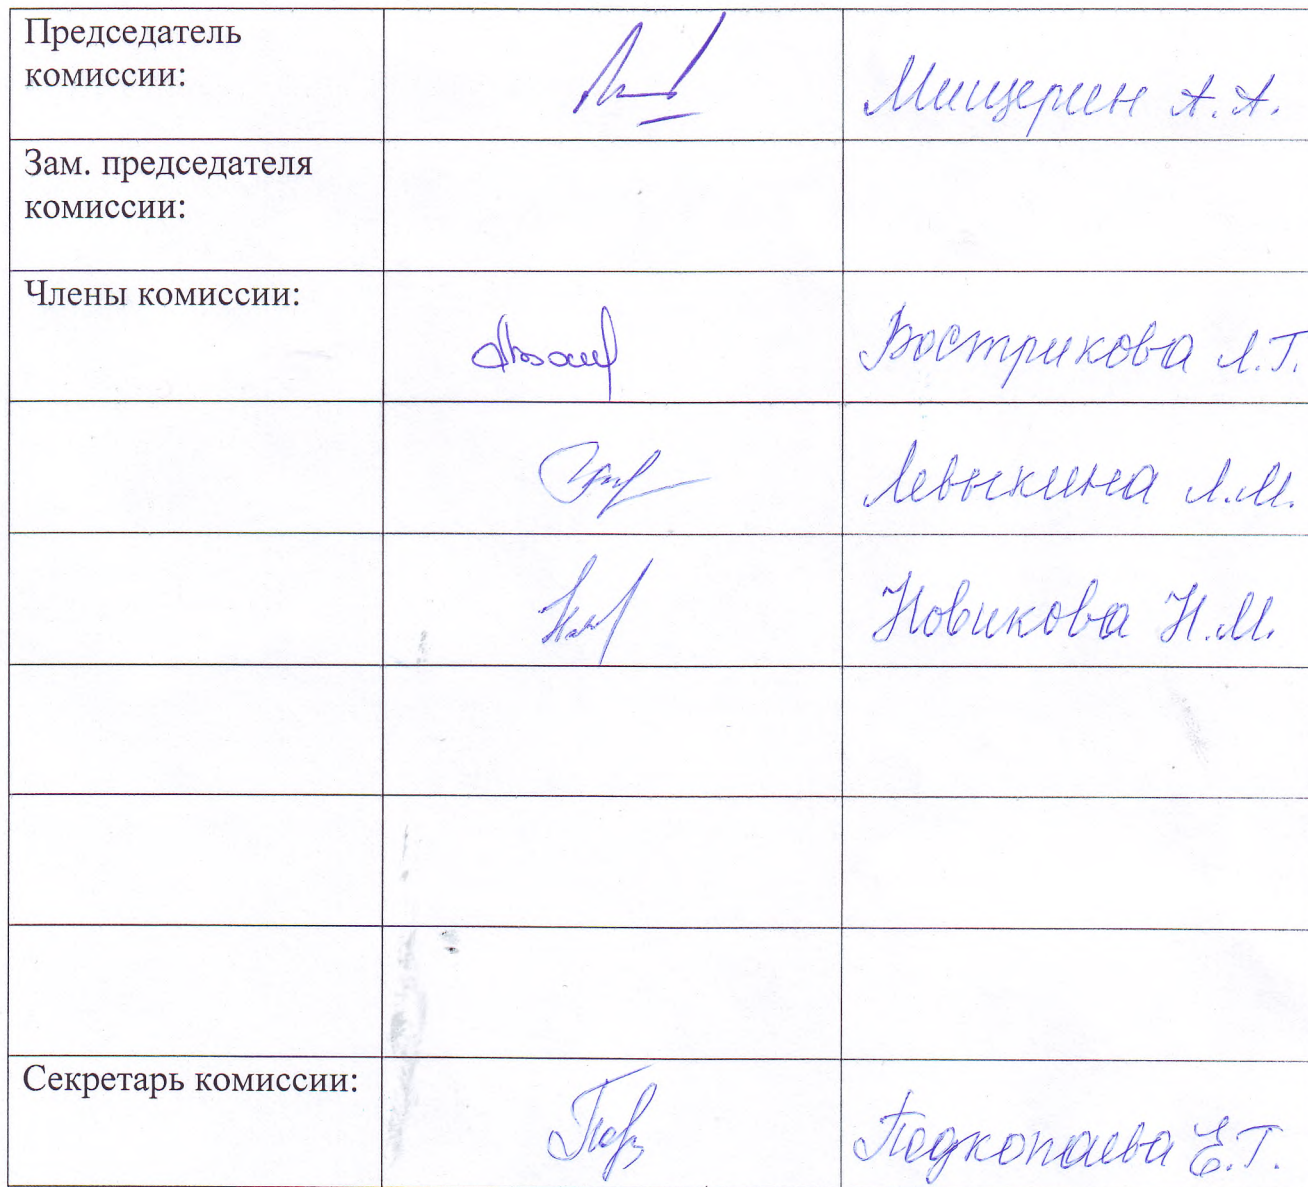 Председатель
комиссии:
Мищерин А. А.
Зам. председателя
комиссии:
Члены комиссии:
Вострикова Л.Г.
Левыкина Л.М.
Новикова Н.М.
Секретарь комиссии:
Подкопаева Е.Г.